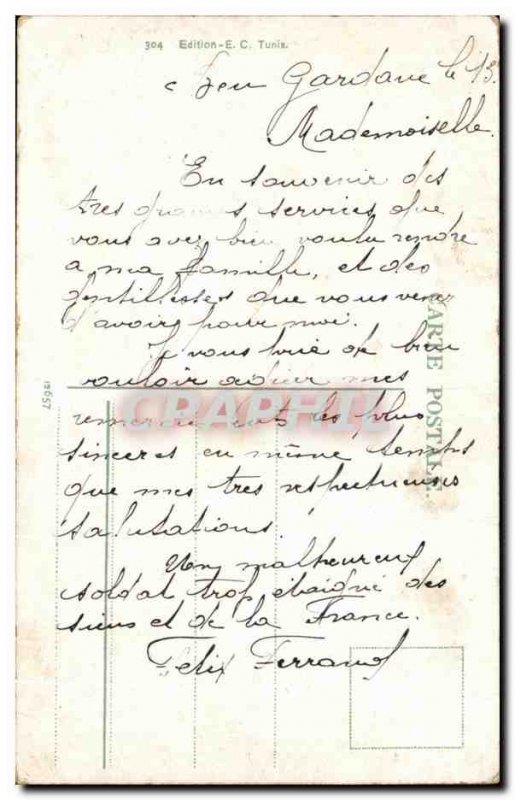 304 Edition-E. C. Tunis.
Ben Gardane le 13.
Mademoiselle.
En souvenir des
tres grands services que
vous avez bien voulu rendre
a ma famille, et des
gentillesses que vous venez
d'avoir pour moi.
Je vous prie de bien
vouloir agréer mes
remerciements les plus
sinceres en même temps
que mes tres respectueuses
salutations.
Un malheureux
soldat trop éloigné des
siens et de la France.
Felix Ferrand
CARTE POSTALE.
12657
CPAPHIL